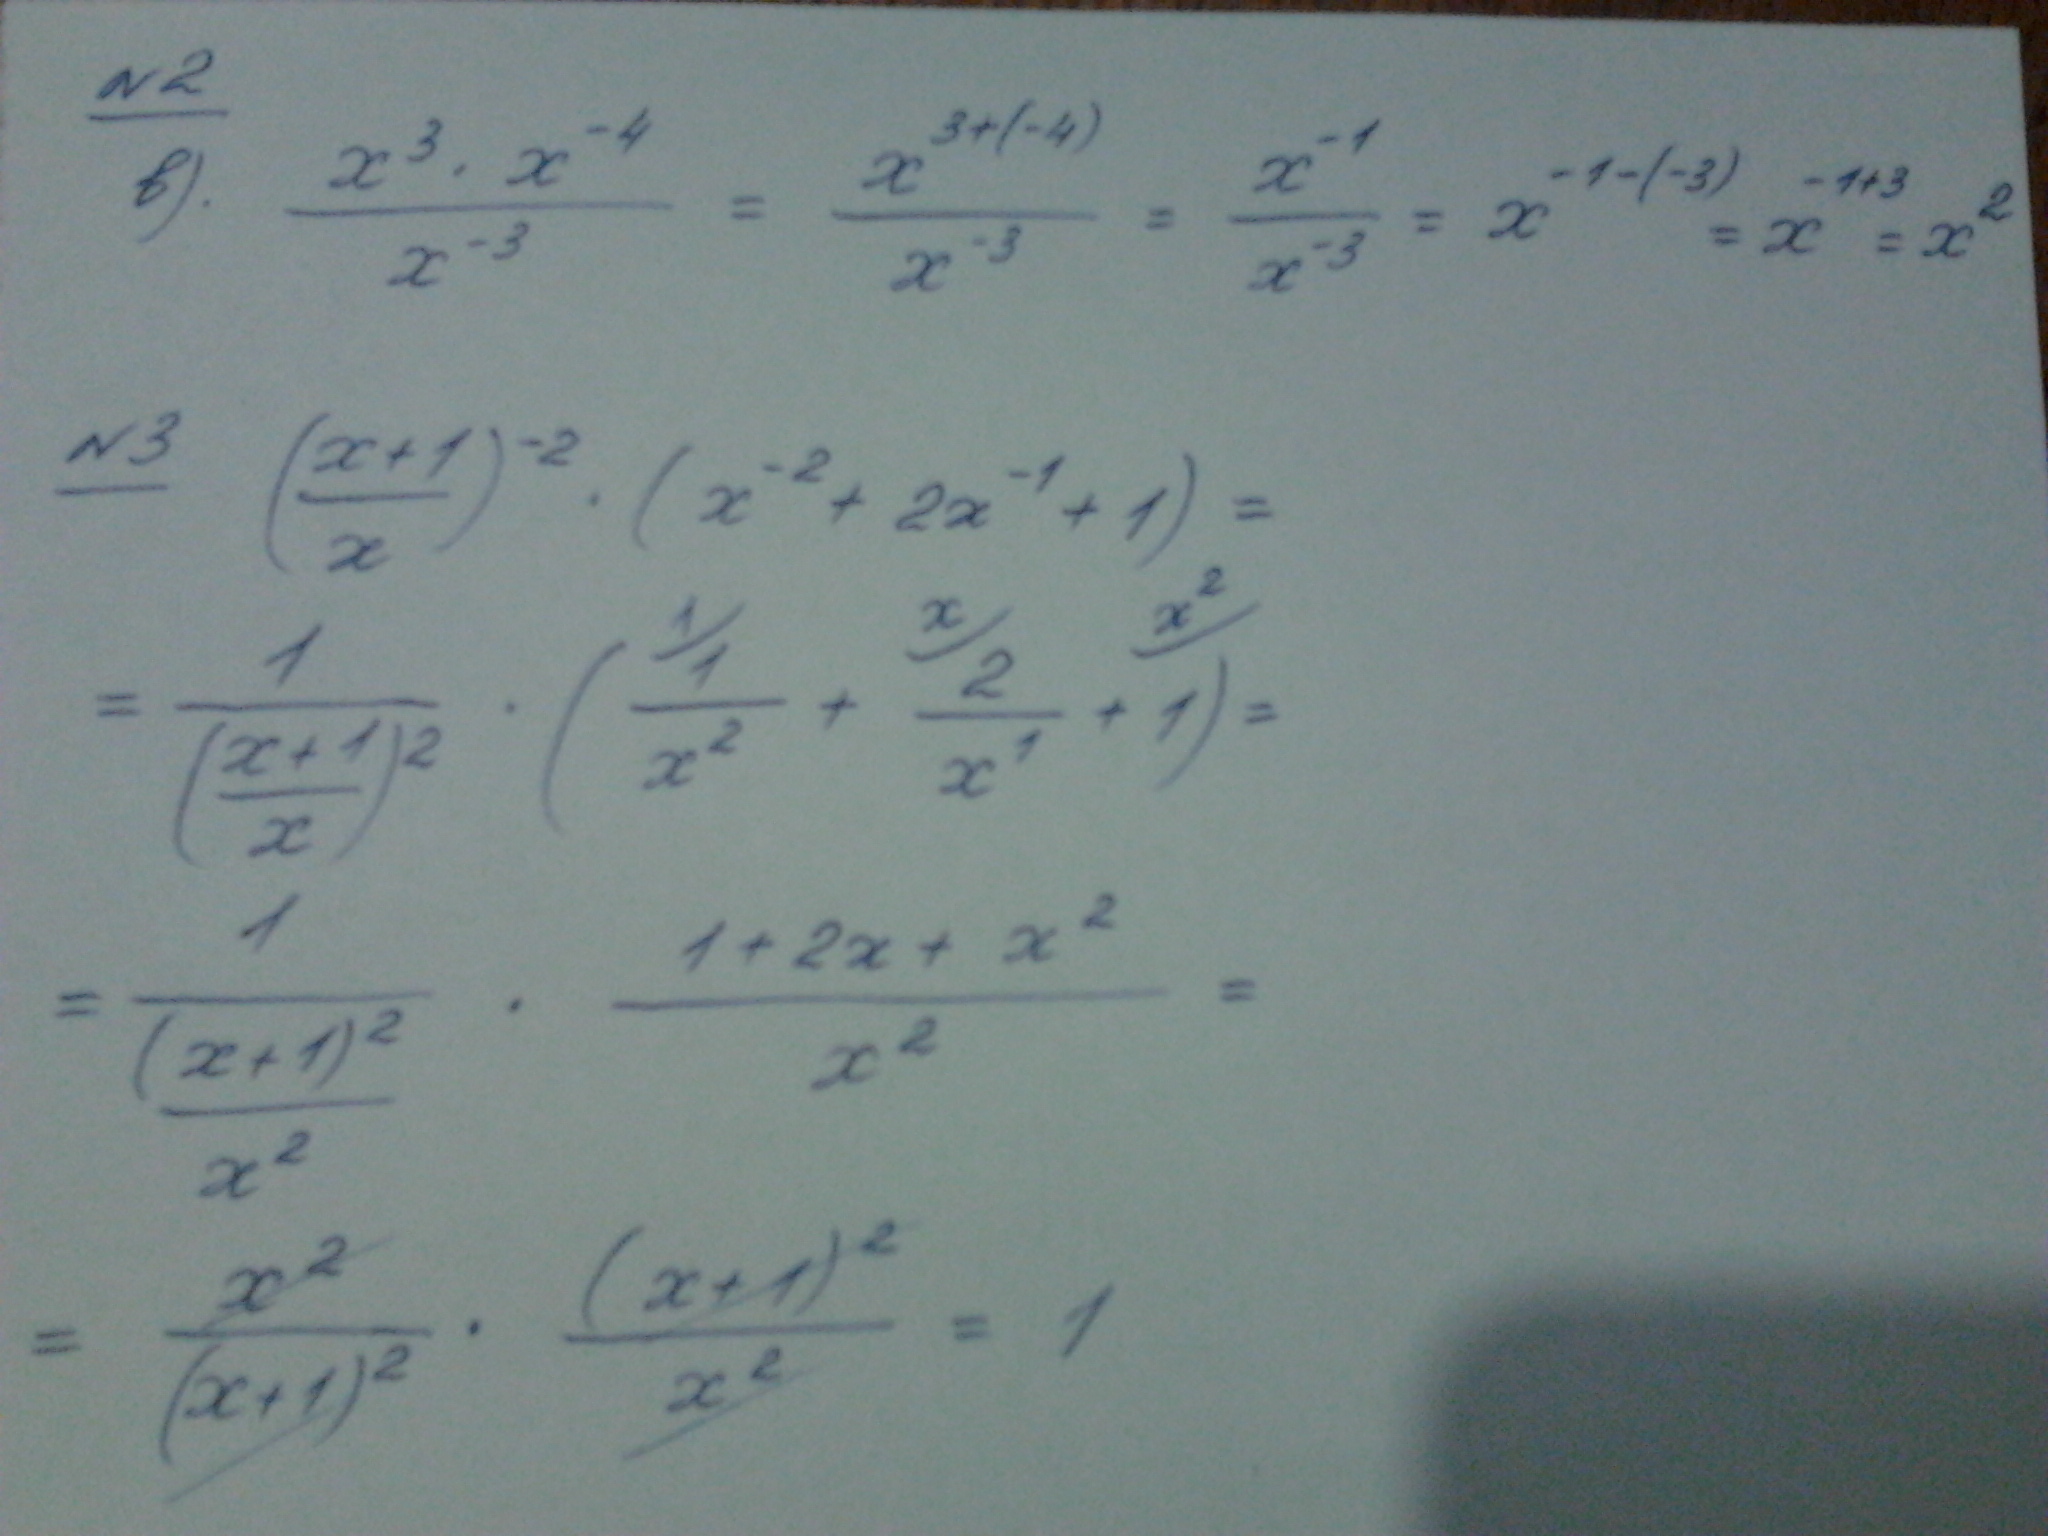 №2
в). x³ · x⁻⁴ / x⁻³ = x³⁺⁽⁻⁴⁾ / x⁻³ = x⁻¹ / x⁻³ = x⁻¹⁻⁽⁻³⁾ = x⁻¹⁺³ = x²
№3 ((x+1)/x)⁻² · (x⁻² + 2x⁻¹ + 1) =
= 1 / ((x+1)/x)² · (¹⁄ 1/x² + ˣ⁄ 2/x¹ + ˣ²⁄ 1) =
= 1 / ((x+1)²/x²) · (1 + 2x + x²)/x² =
= x²/(x+1)² · (x+1)²/x² = 1